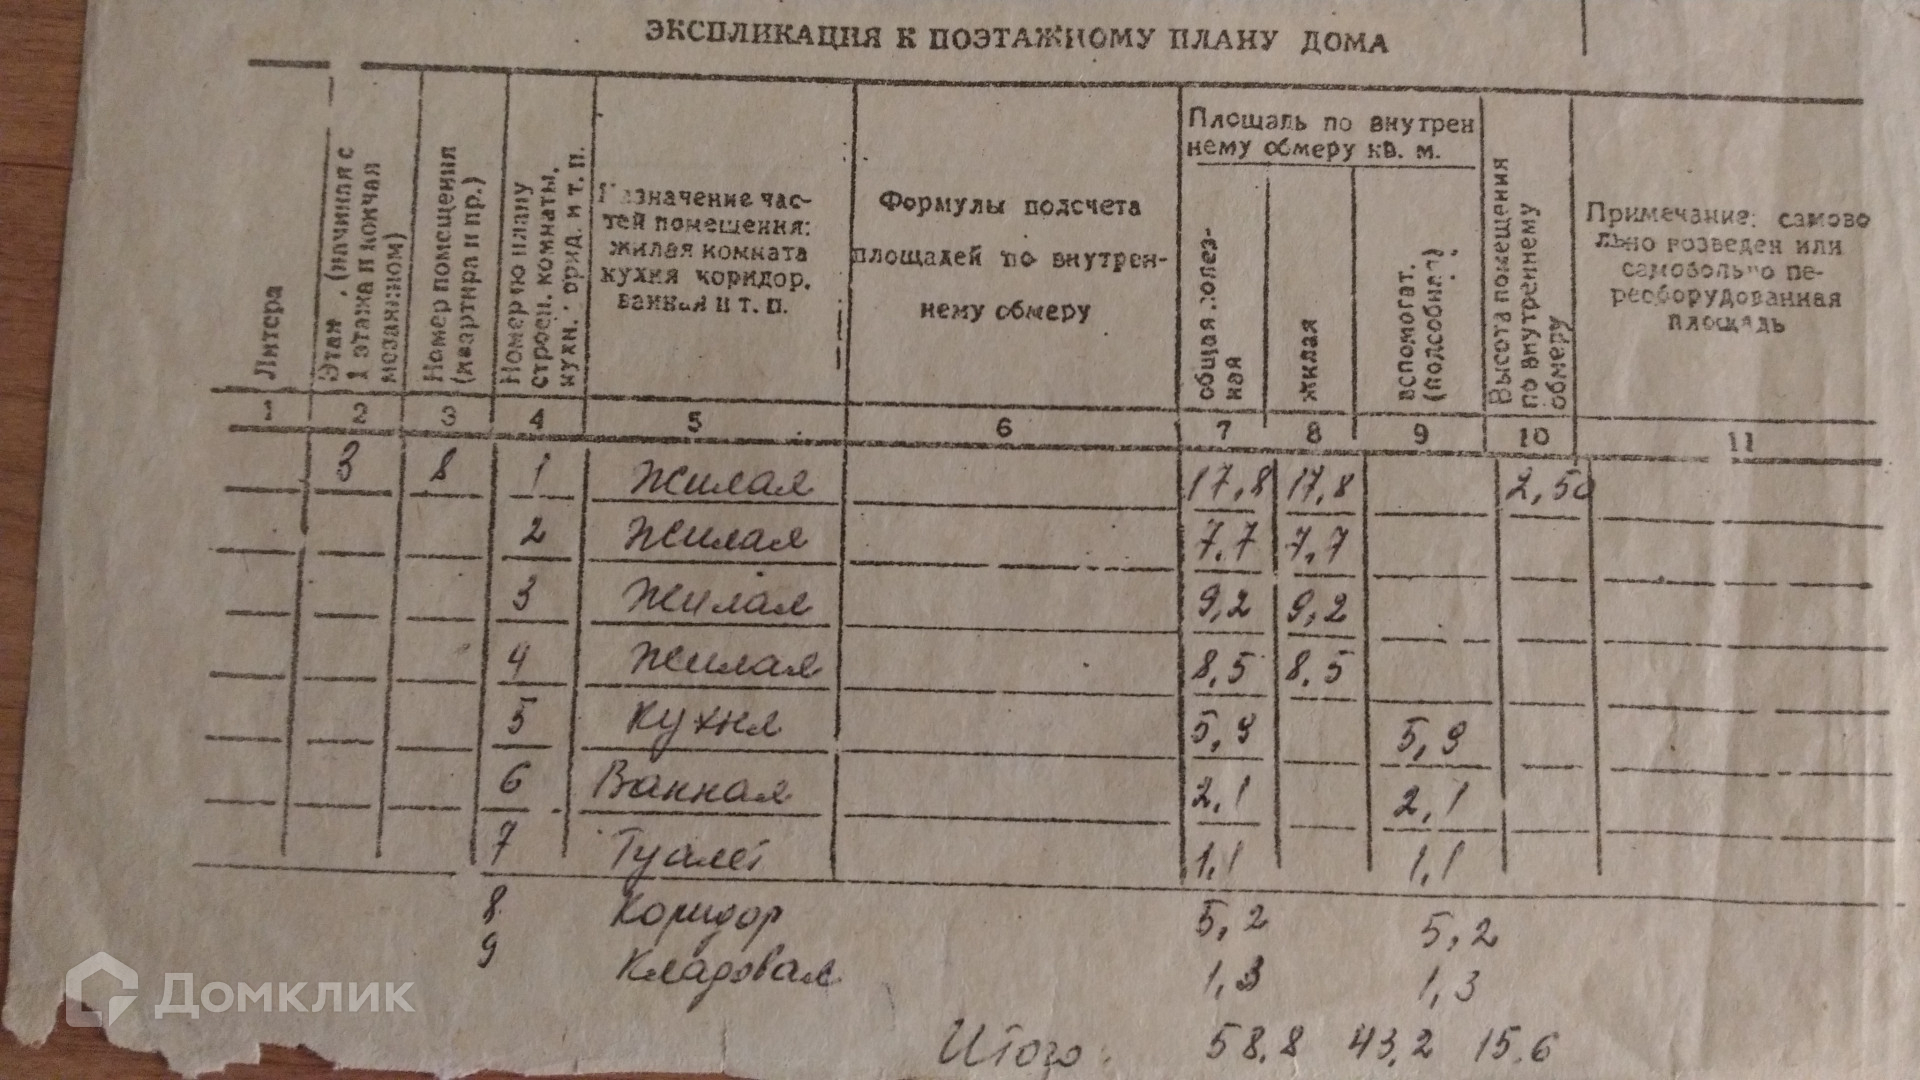 ЭКСПЛИКАЦИЯ К ПОЭТАЖНОМУ ПЛАНУ ДОМА
Литера
Этаж (начиная с
1 этажа и кончая
мезанином)
Номер помещения
(квартира и пр.)
Номер по плану
строен. комнаты,
кухн. корид. и т. п.
Назначение час-
тей помещения:
жилая комната
кухня коридор,
ванная и т. п.
Формулы подсчета
площадей по внутрен-
нему обмеру
Площадь по внутрен
нему обмеру кв. м.
общая полез-
ная
жилая
вспомогат.
(подсобная)
Высота помещения
по внутреннему
обмеру
Примечание: самово
льно возведен или
самовольно пе-
реоборудованная
площадь
1 2 3 4 5 6 7 8 9 10 11
3 8 1 Жилая 17,8 17,8 2,50
2 Жилая 7,7 7,7
3 Жилая 9,2 9,2
4 Жилая 8,5 8,5
5 Кухня 5,9 5,9
6 Ванная 2,1 2,1
7 Туалет 1,1 1,1
8 Коридор 5,2 5,2
9 Кладовая 1,3 1,3
Итого: 58,8 43,2 15,6
Домклик